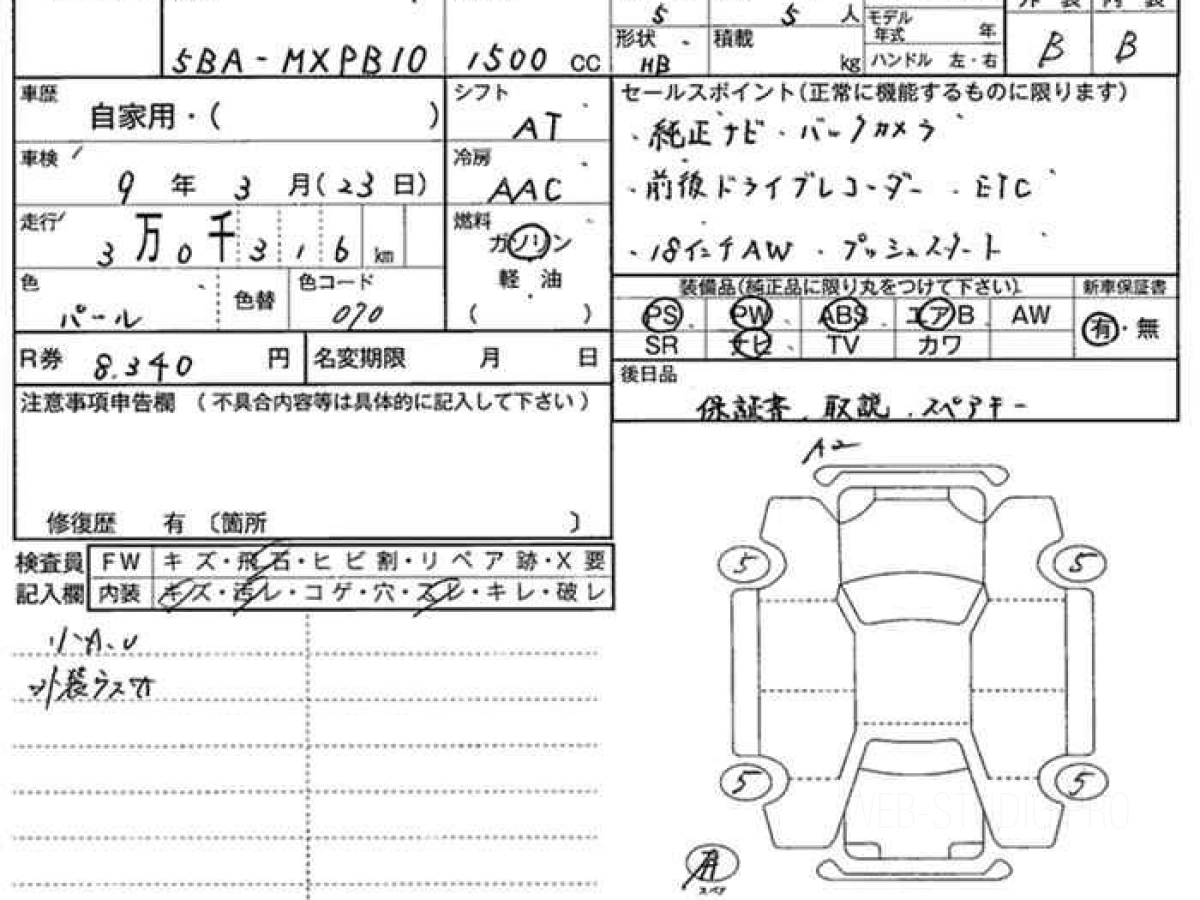 5 5 人 モデル年式 年 外装 内装
5BA-MXPB10 1500 cc 形状 HB 積載 kg ハンドル 左・右 B B
車歴 自家用・( ) シフト AT
車検 9年 3月(23日) 冷房 AAC
走行 3万0千316km 燃料 ガソリン
軽油
( )
色 パール 色替 色コード 070
R券 8.340円 名変期限 月 日
注意事項申告欄 (不具合内容等は具体的に記入して下さい)
修復歴 有 〔箇所 〕
セールスポイント(正常に機能するものに限ります)
・純正ナビ・バックカメラ
・前後ドライブレコーダー・ETC
・18インチAW・プッシュスタート
装備品(純正品に限り丸をつけて下さい) 新車保証書
PS PW ABS エアB AW 有・無
SR ナビ TV カワ
後日品
保証書、取説、スペアキー
検査員 FW キズ・飛石・ヒビ割・リペア跡・X要
記入欄 内装 キズ・汚レ・コゲ・穴・スレ・キレ・破レ
小A.U
A2
5 5
5 5
スペア
WEB-STUDIO.PRO